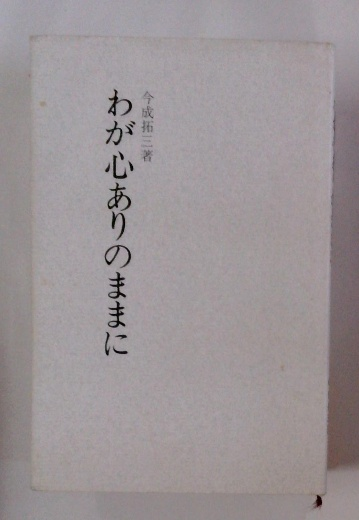 今成拓三著
わが心ありのままに